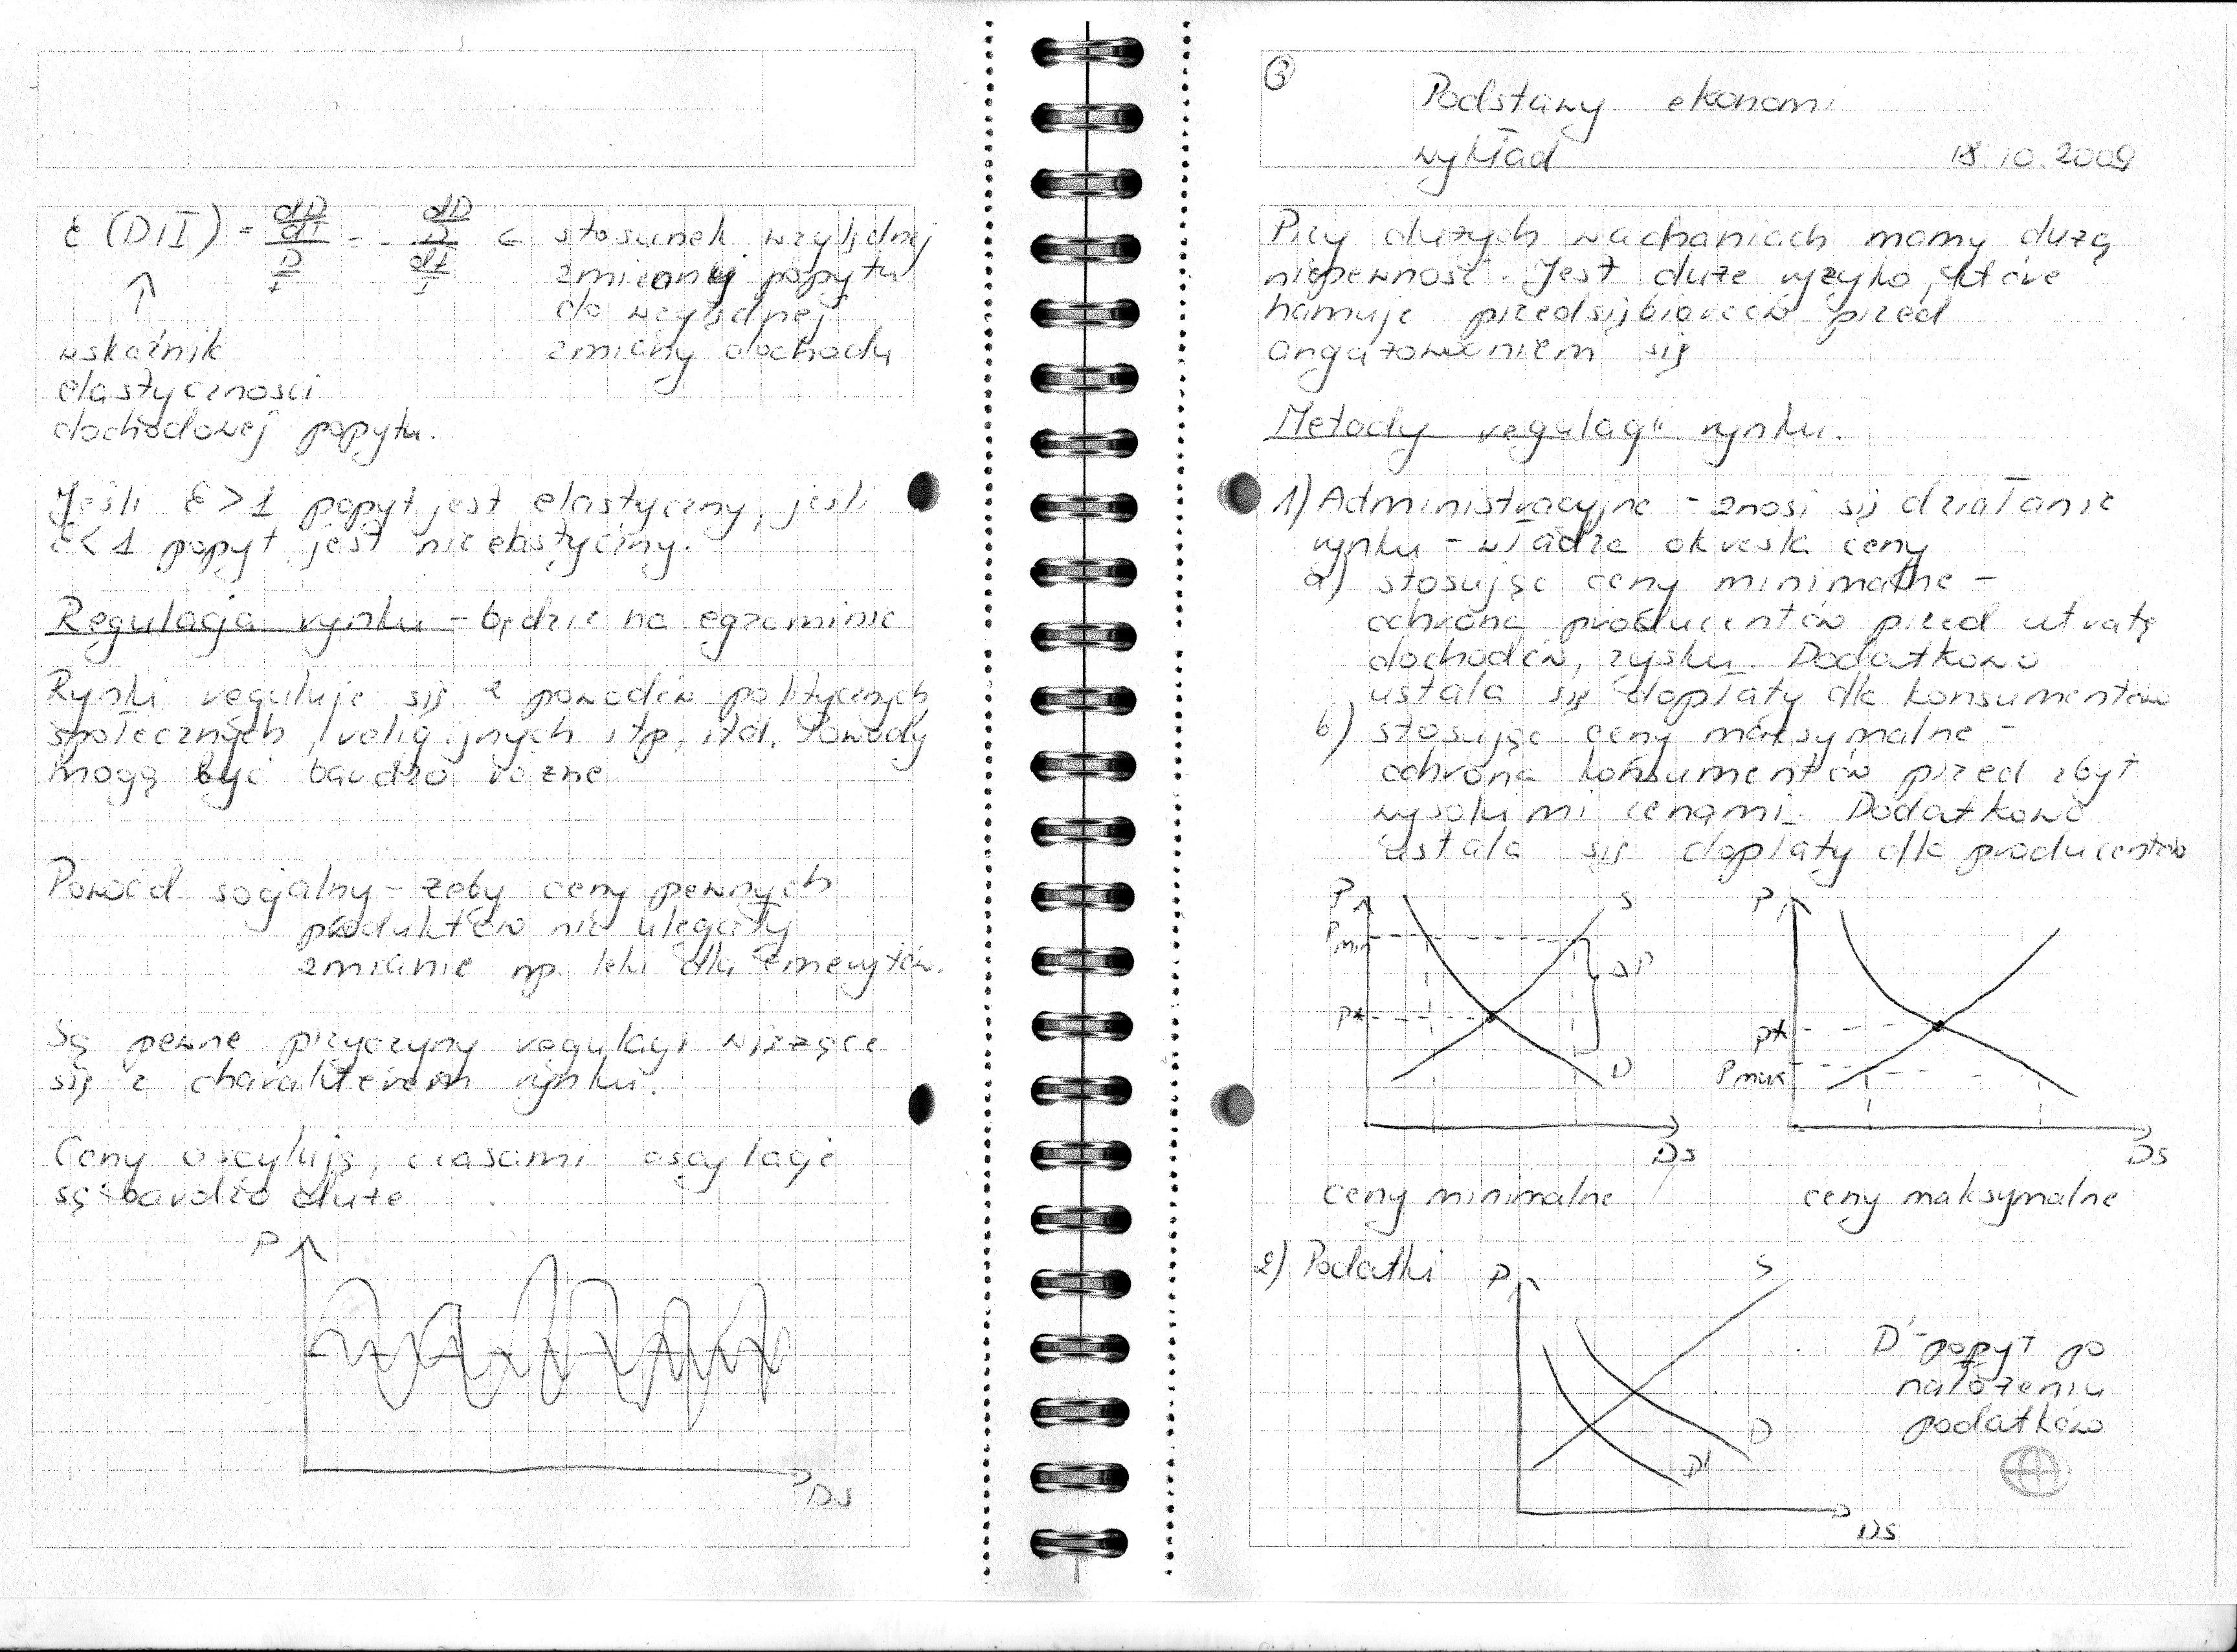 ε (D,I) = dD/dI / D/I = dD/D / dI/I ← stosunek względnej
zmiennej popytu
do względnej
zmiany dochodu
↑
wskaźnik
elastyczności
dochodowej popytu.
Jeśli ε > 1 popyt jest elastyczny, jeśli
ε < 1 popyt jest nieelastyczny.
Regulacja rynku - będzie na egzaminie
Rynki reguluje się z powodów politycznych
społecznych, religijnych itp, itd. Powody
mogą być bardzo różne
Powód socjalny - żeby ceny pewnych
produktów nie ulegały
zmianie np. leki dla emerytów.
Są pewne przyczyny regulacji wiążące
się z charakterem rynku.
Ceny oscylują, czasami oscylacje
są bardzo duże
P
DS
3
Podstawy ekonomi
wykład 18.10.2009
Przy dużych wachaniach mamy dużą
niepewność. Jest duże ryzyko, które
hamuje przedsiębiorców przed
angażowaniem się
Metody regulacji rynku.
1) Administracyjne - znosi się działanie
rynku - władza określa ceny
a) stosując ceny minimalne -
ochrona producentów przed utratą
dochodów, zysku. Dodatkowo
ustala się dopłaty dla konsumentów
b) stosując ceny maksymalne -
ochrona konsumentów przed zbyt
wysokimi cenami. Dodatkowo
ustala się dopłaty dla producentów
P S
Pmin
ΔP
P*
D
DS
ceny minimalne
P
P*
Pmax
DS
ceny maksymalne
2) Podatki
P S
D
D'
DS
D'-popyt po
nałożeniu
podatków